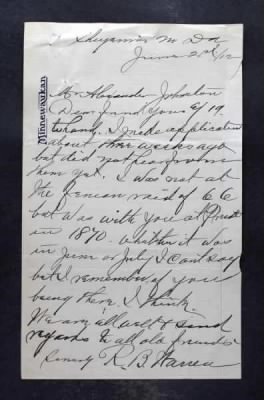 Sheyenne N Da
June 20th/12
Minnewaukan
Mr Alexander Johnston
Dear friend yours 6/19
to hand. I made application
about three weeks ago
but did not hear from
them yet. I was not at
the Fenian raid of 66
but was with you at
in 1870. whether it was
in June or July I cant say
but I remember of you
being there I think.
We are all well & send
regards to all old friends
R. B. Warren